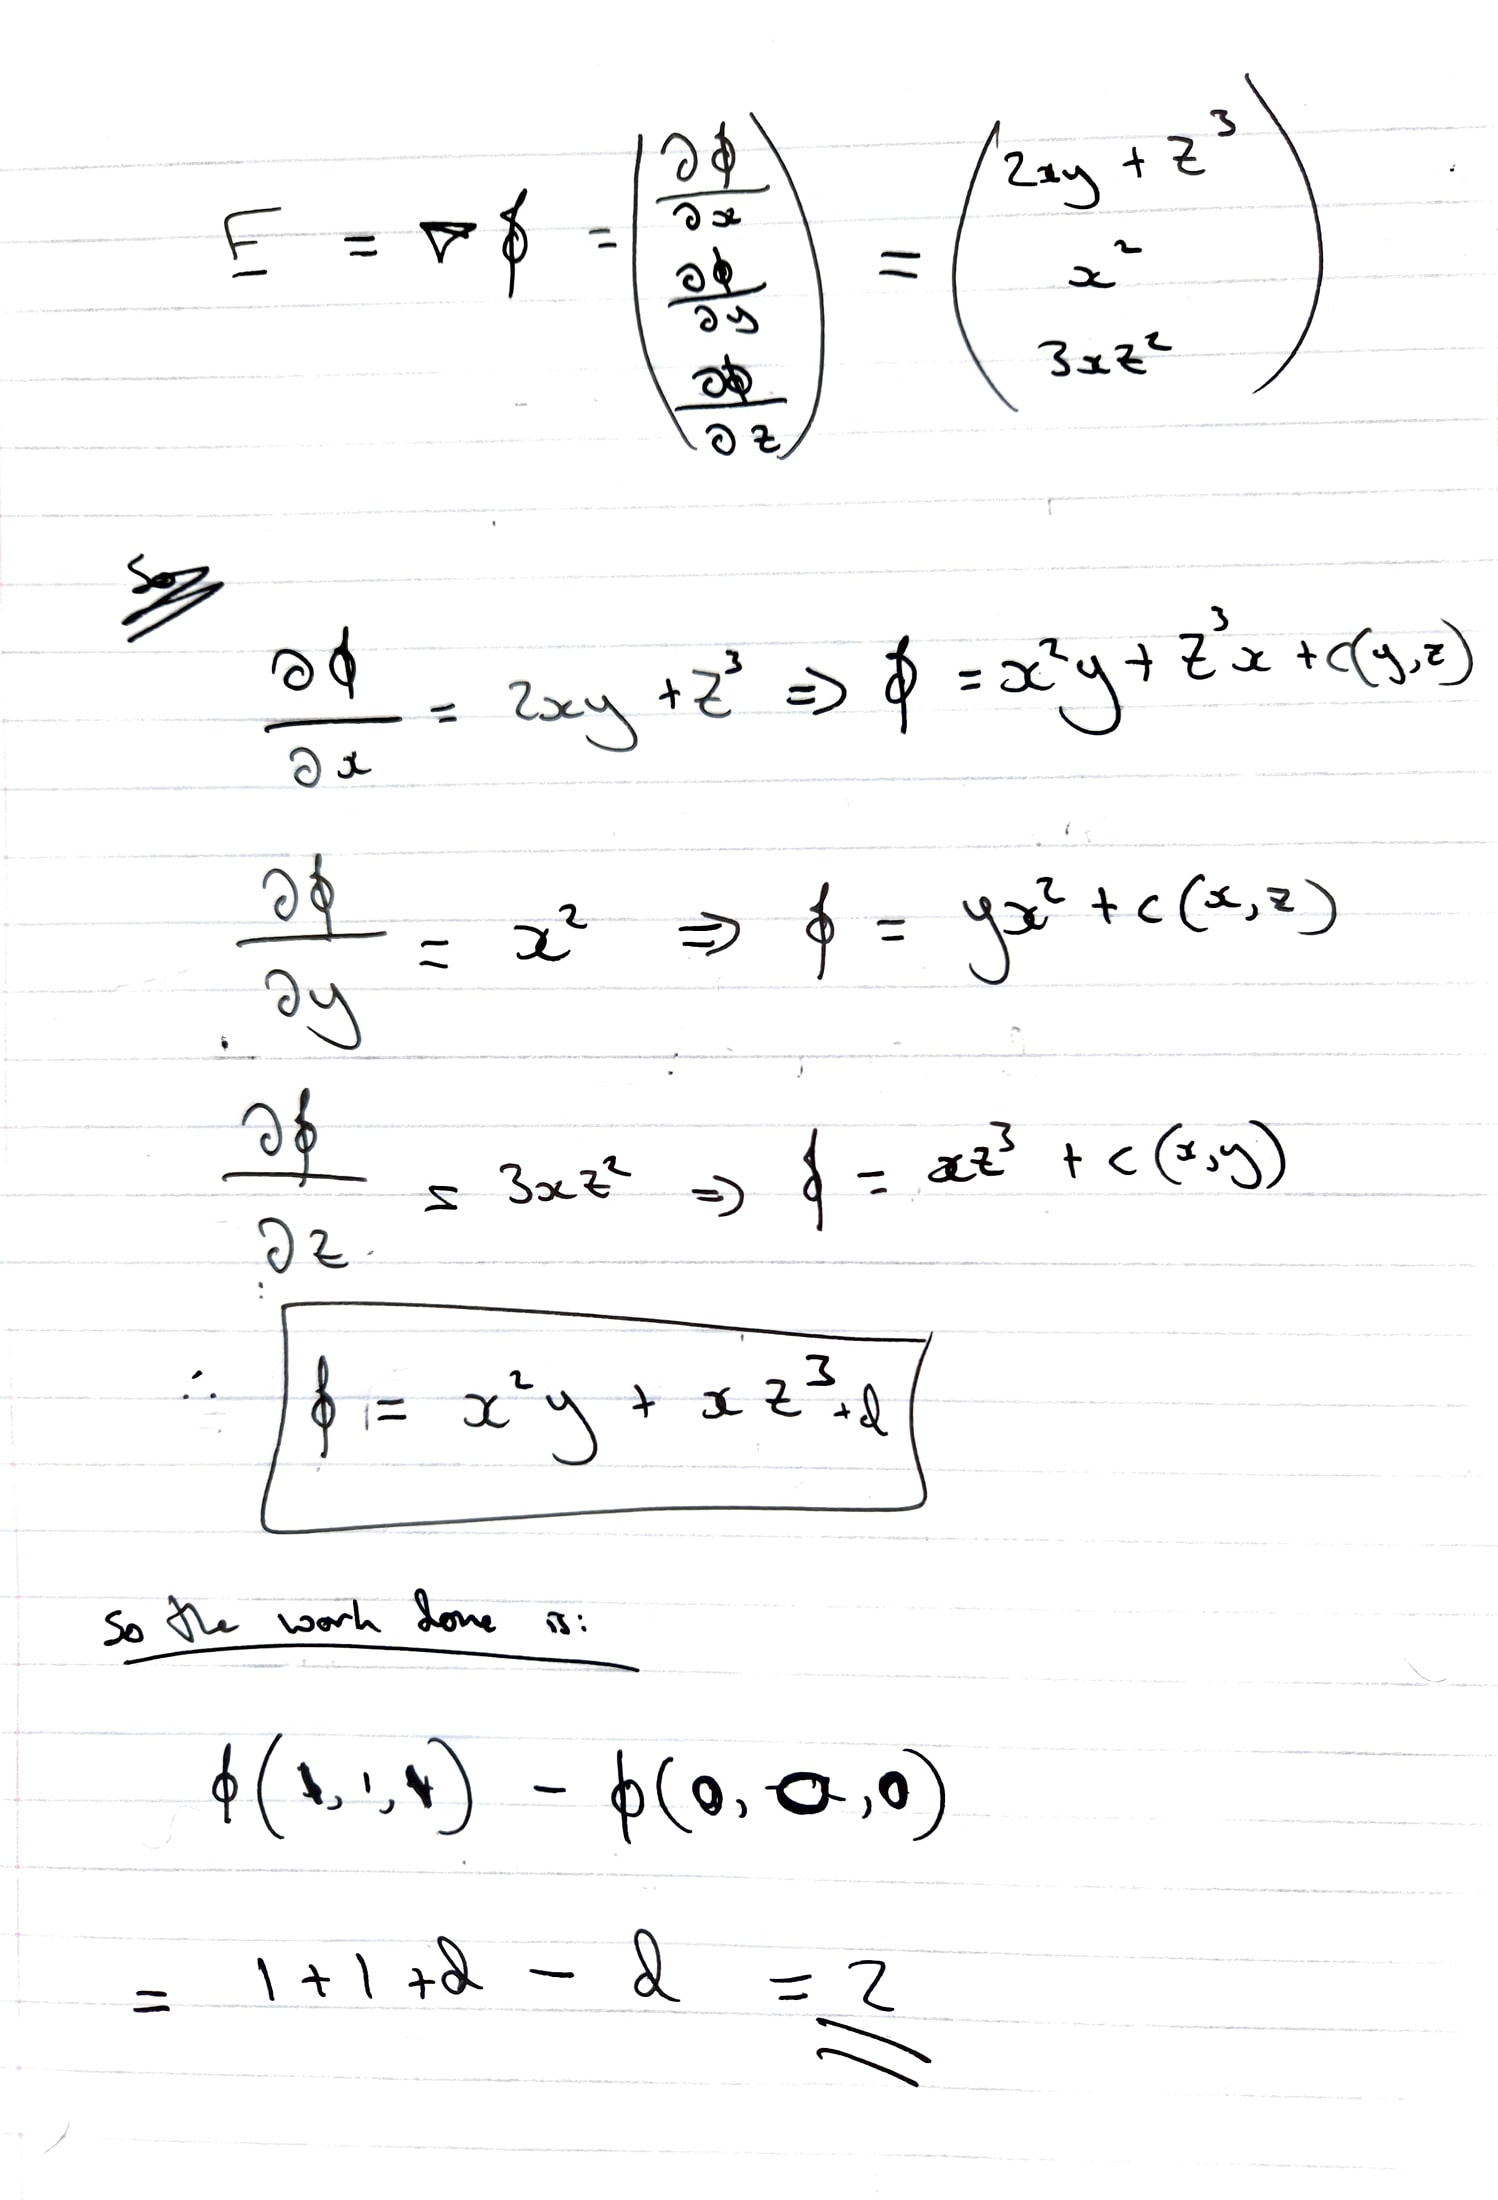 F = ∇ϕ = (∂ϕ/∂x ∂ϕ/∂y ∂ϕ/∂z) = (2xy + z³ x² 3xz²)
So
∂ϕ/∂x = 2xy + z³ ⇒ ϕ = x²y + z³x + c(y,z)
∂ϕ/∂y = x² ⇒ ϕ = yx² + c(x,z)
∂ϕ/∂z = 3xz² ⇒ ϕ = xz³ + c(x,y)
∴ ϕ = x²y + xz³ + d
So the work done is:
ϕ(1,1,1) - ϕ(0,0,0)
= 1+1+d - d = 2